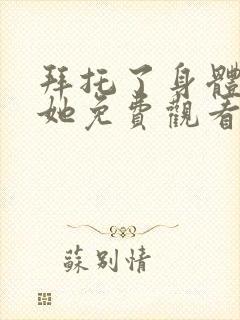 拜托了身體
她免費觀看
蘇別情